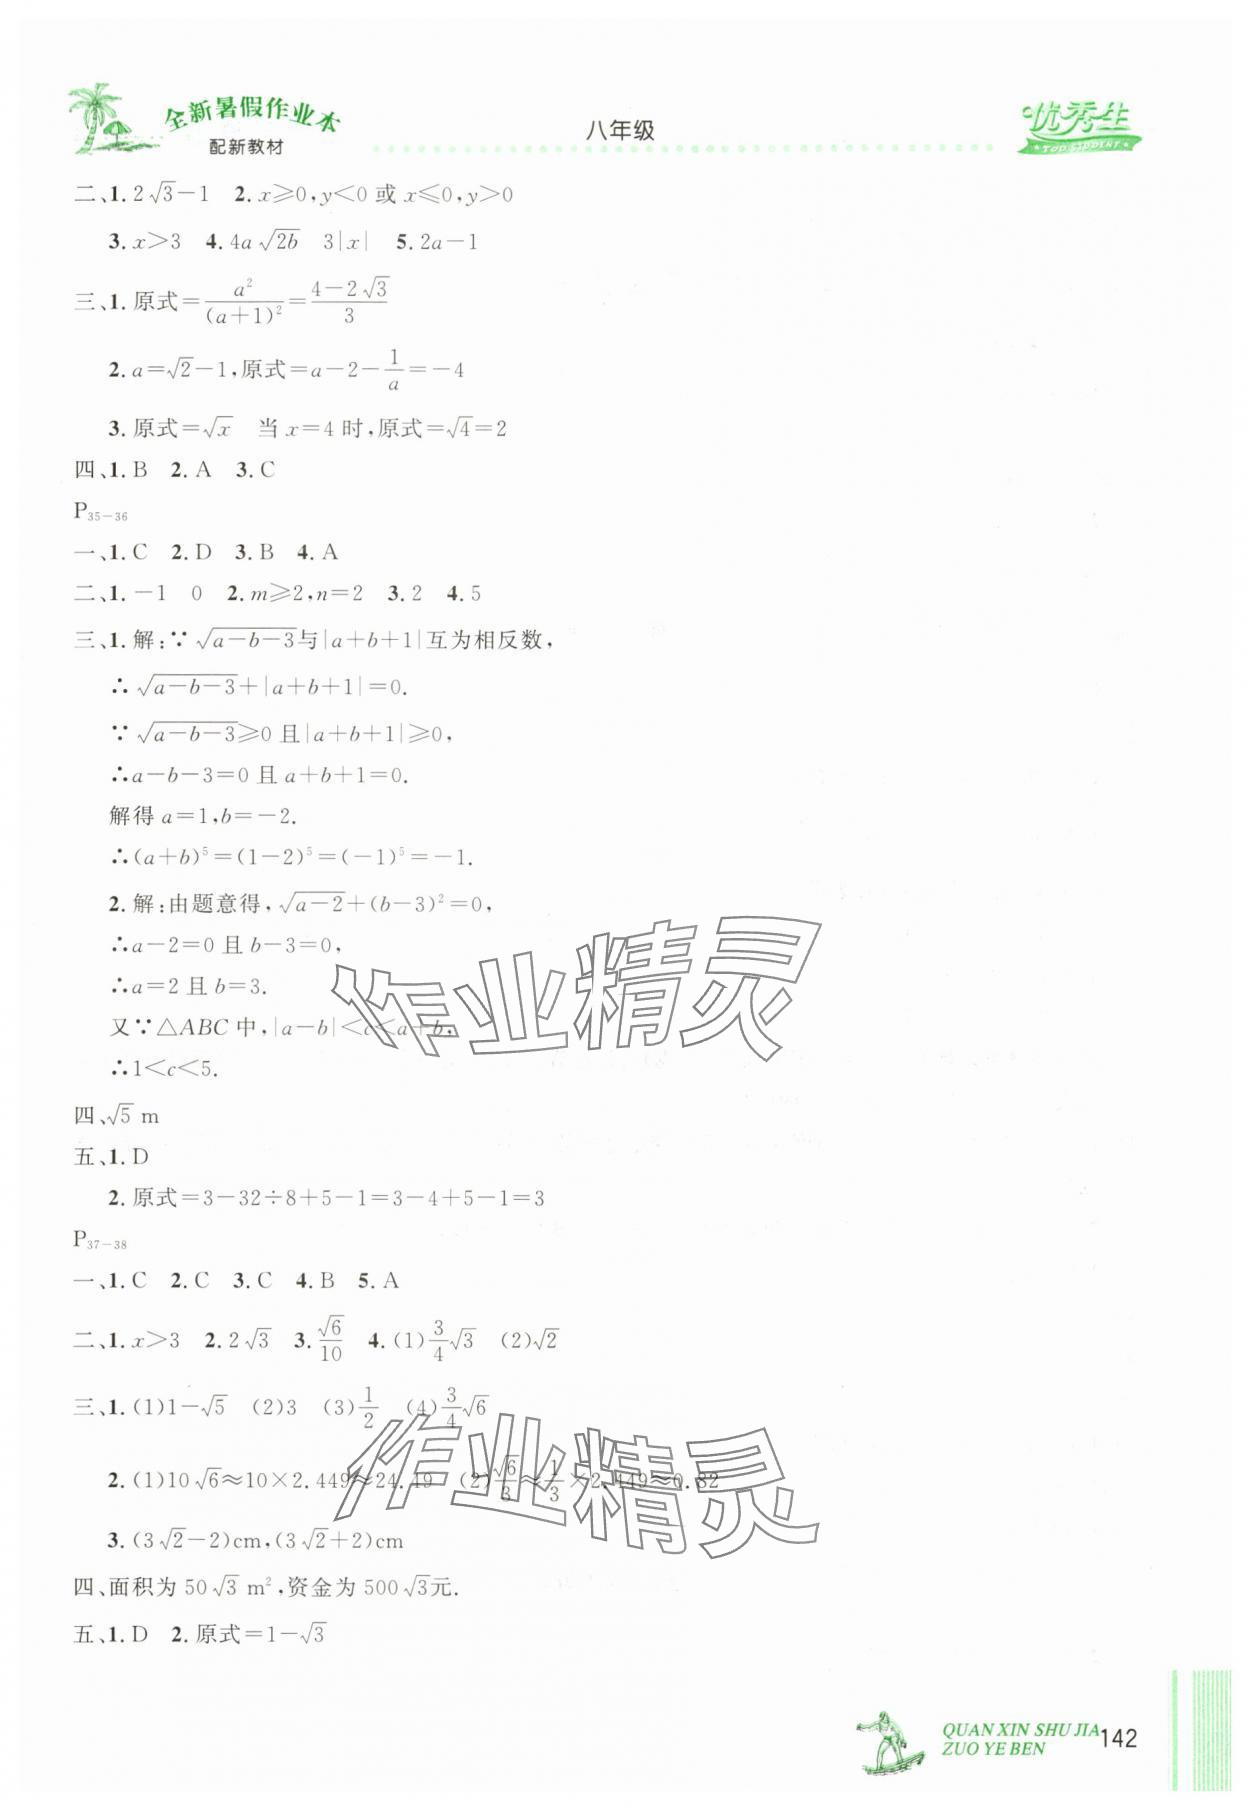 全新暑假作业本
配新教材
八年级
优秀生
TOD SIDDENT
二、1. 2√3－1　2. x≥0，y＜0 或 x≤0，y＞0
3. x＞3　4. 4a√(2b)　3|x|　5. 2a－1
三、1. 原式＝a²/(a＋1)²＝(4－2√3)/3
2. a＝√2－1，原式＝a－2－1/a＝－4
3. 原式＝√x　当 x＝4 时，原式＝√4＝2
四、1. B　2. A　3. C
P35－36
一、1. C　2. D　3. B　4. A
二、1. －1　0　2. m≥2，n＝2　3. 2　4. 5
三、1. 解：∵√(a－b－3)与|a＋b＋1|互为相反数，
∴√(a－b－3)＋|a＋b＋1|＝0.
∵√(a－b－3)≥0 且|a＋b＋1|≥0，
∴a－b－3＝0 且 a＋b＋1＝0.
解得 a＝1，b＝－2.
∴(a＋b)⁵＝(1－2)⁵＝(－1)⁵＝－1.
2. 解：由题意得，√(a－2)＋(b－3)²＝0，
∴a－2＝0 且 b－3＝0，
∴a＝2 且 b＝3.
又∵△ABC 中，|a－b|＜c＜a＋b，
∴1＜c＜5.
作业精灵
四、√5 m
五、1. D
2. 原式＝3－32÷8＋5－1＝3－4＋5－1＝3
P37－38
一、1. C　2. C　3. C　4. B　5. A
二、1. x＞3　2. 2√3　3. √6/10　4. (1)3/4√3　(2)√2
三、1. (1)1－√5　(2)3　(3)1/2　(4)3/4√6
2. (1)10√6≈10×2.449≈24.49　(2)√6/3≈1/3×2.449≈0.82
作业精灵
3. (3√2－2)cm，(3√2＋2)cm
四、面积为 50√3 m²，资金为 500√3元.
五、1. D　2. 原式＝1－√3
QUAN XIN SHU JIA
ZUO YE BEN
142